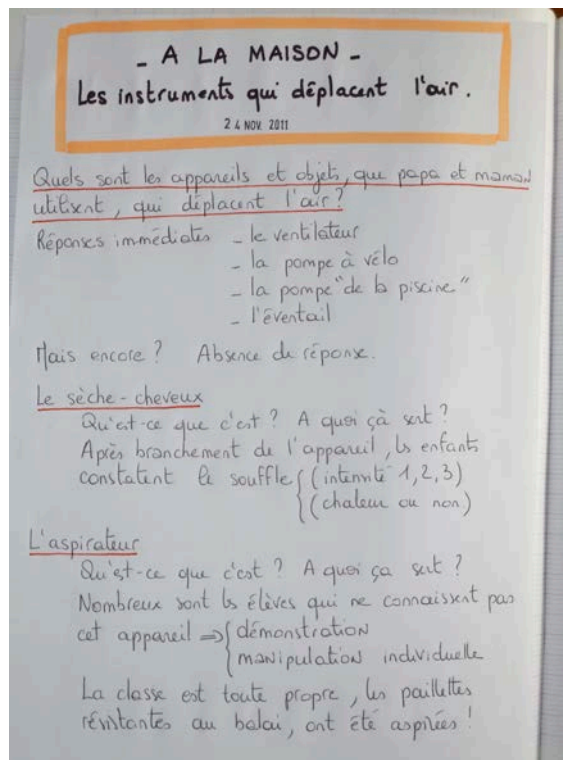 - A LA MAISON -
Les instruments qui déplacent l'air.
24 NOV. 2011
Quels sont les appareils et objets, que papa et maman
utilisent, qui déplacent l'air ?
Réponses immédiates - le ventilateur
- la pompe à vélo
- la pompe "de la piscine"
- l'éventail
Mais encore ? Absence de réponse.
Le sèche-cheveux
Qu'est-ce que c'est ? A quoi çà sert ?
Après branchement de l'appareil, les enfants
constatent le souffle { (intensité 1, 2, 3)
(chaleur ou non)
L'aspirateur
Qu'est-ce que c'est ? A quoi ça sert ?
Nombreux sont les élèves qui ne connaissent pas
cet appareil => { démonstration
manipulation individuelle
La classe est toute propre, les paillettes
résistantes au balai, ont été aspirées !